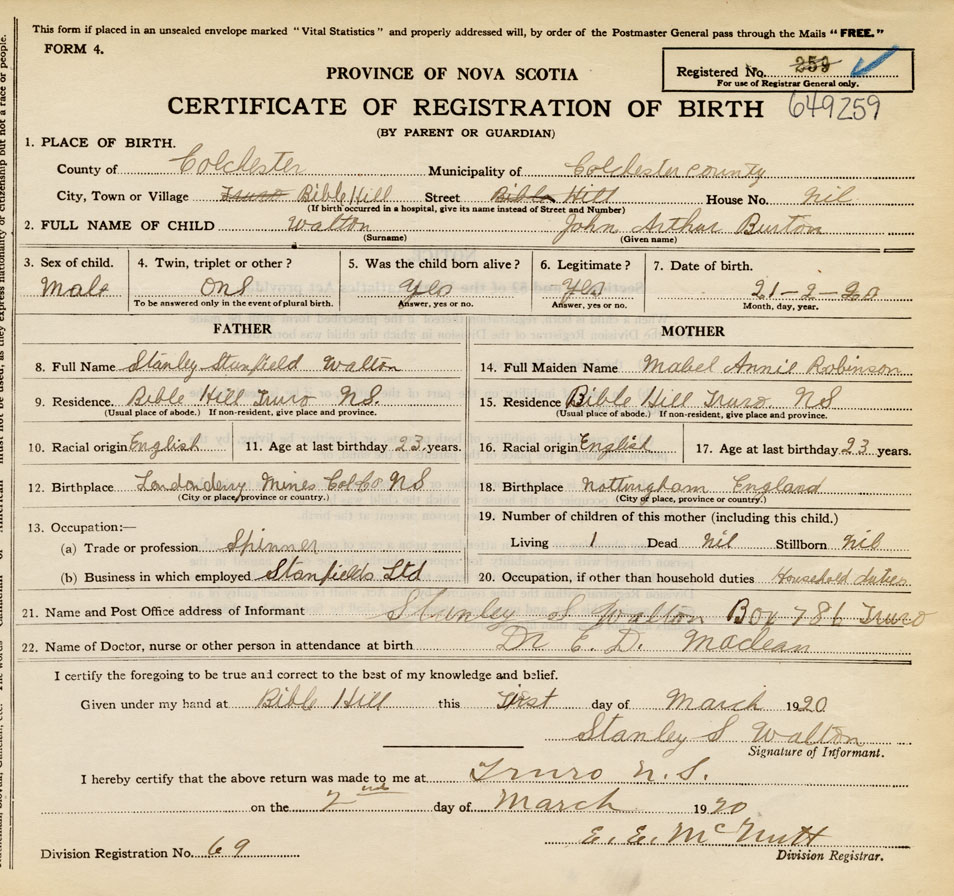 This form if placed in an unsealed envelope marked "Vital Statistics" and properly addressed will, by order of the Postmaster General pass through the Mails "FREE."
FORM 4.
Registered No. 259
For use of Registrar General only.
PROVINCE OF NOVA SCOTIA
CERTIFICATE OF REGISTRATION OF BIRTH 649259
(BY PARENT OR GUARDIAN)
1. PLACE OF BIRTH.
County of Colchester Municipality of Colchester county
City, Town or Village Truro Bible Hill Street Bible Hill House No. Nil
(If birth occurred in a hospital, give its name instead of Street and Number)
2. FULL NAME OF CHILD Walton John Arthur Burton
(Surname) (Given name)
3. Sex of child. 4. Twin, triplet or other? 5. Was the child born alive? 6. Legitimate? 7. Date of birth.
Male One Yes Yes 21-2-20
To be answered only in the event of plural birth. Answer, yes or no. Answer, yes or no. Month, day, year.
FATHER MOTHER
8. Full Name Stanley Stanfield Walton 14. Full Maiden Name Mabel Annie Robinson
9. Residence. Bible Hill Truro NS. 15. Residence Bible Hill Truro NS
(Usual place of abode.) If non-resident, give place and province. (Usual place of abode.) If non-resident, give place and province.
10. Racial origin English 11. Age at last birthday 23 years. 16. Racial origin English 17. Age at last birthday 23 years.
12. Birthplace Londonderry Mines Col Co NS 18. Birthplace Nottingham England
(City or place, province or country.) (City or place, province or country.)
13. Occupation:— 19. Number of children of this mother (including this child.)
(a) Trade or profession Spinner Living 1 Dead Nil Stillborn Nil
(b) Business in which employed Stanfields Ltd 20. Occupation, if other than household duties Household duties
21. Name and Post Office address of Informant Stanley S Walton Box 786 Truro
22. Name of Doctor, nurse or other person in attendance at birth Dr E. D. Maclean
I certify the foregoing to be true and correct to the best of my knowledge and belief.
Given under my hand at Bible Hill this First day of March 1920
Stanley S Walton
Signature of Informant.
I hereby certify that the above return was made to me at Truro N.S.
on the 2nd day of March 1920
E. E. McNutt
Division Registration No. 69 Division Registrar.